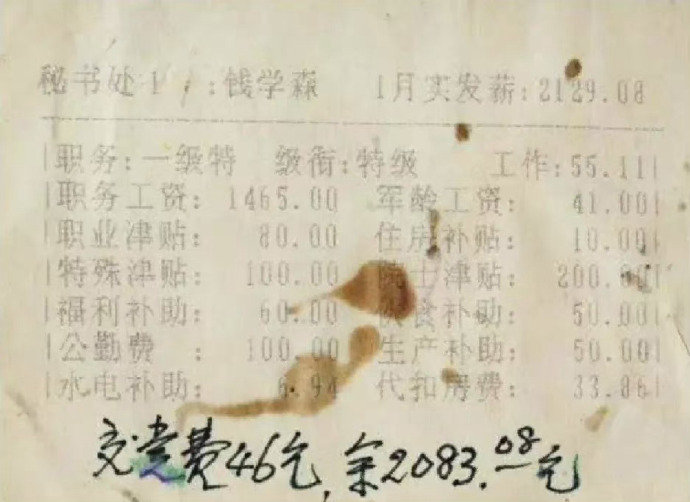 秘书处1 :钱学森 1月实发薪:2129.08
职务:一级特 级衔:特级 工作:55.11
职务工资: 1465.00 军龄工资: 41.00
职业津贴: 80.00 住房补贴: 10.00
特殊津贴: 100.00 院士津贴: 200.00
福利补助: 60.00 伙食补助: 50.00
公勤费 : 100.00 生产补助: 50.00
水电补助: 6.94 代扣房费: 33.86
交党费46元,余2083.08元